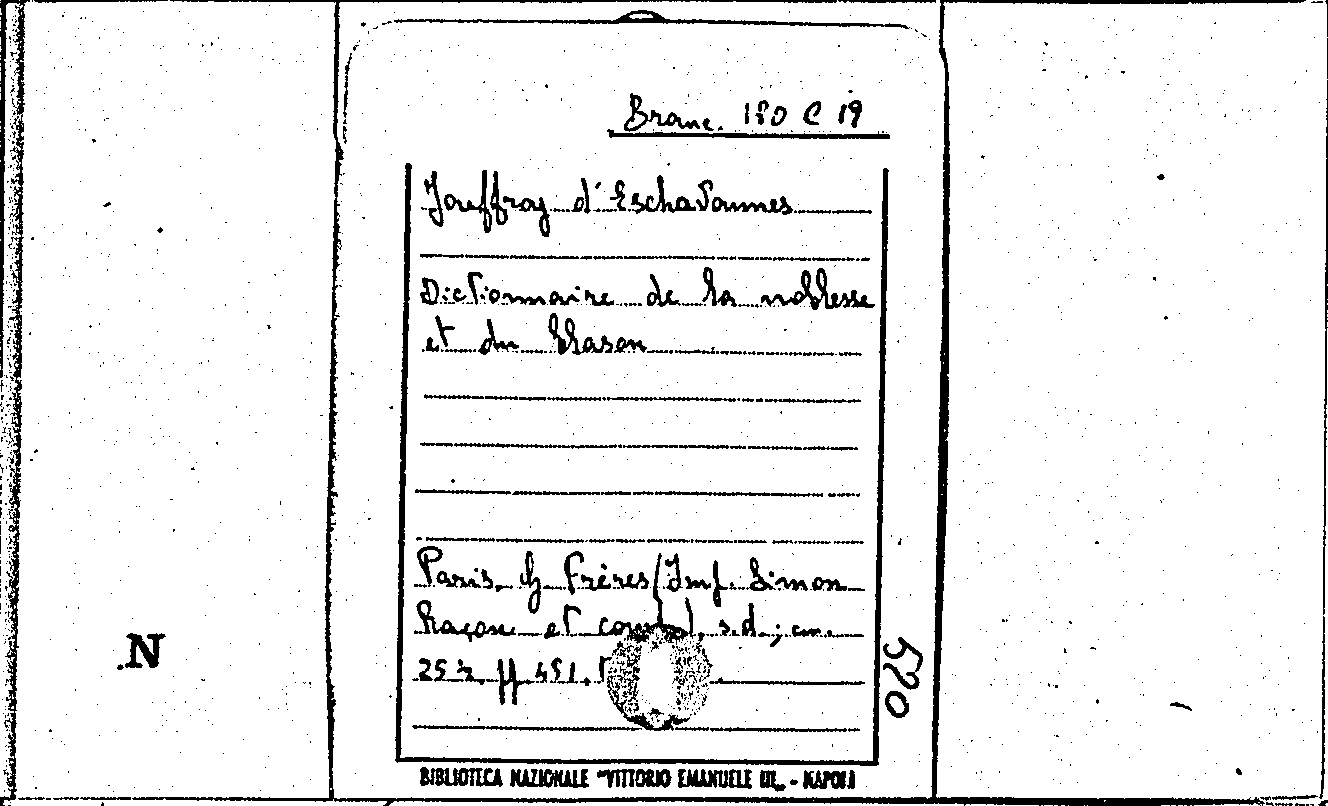 Branc. 180 C 19
Jouffroy d'Eschavannes
Dictionnaire de la noblesse
et du blason
Paris, Frères (Imp. Simon
Raçon et comp.), s.d.; cm.
25 pp 451.
590
N
BIBLIOTECA NAZIONALE "VITTORIO EMANUELE III„ - NAPOLI